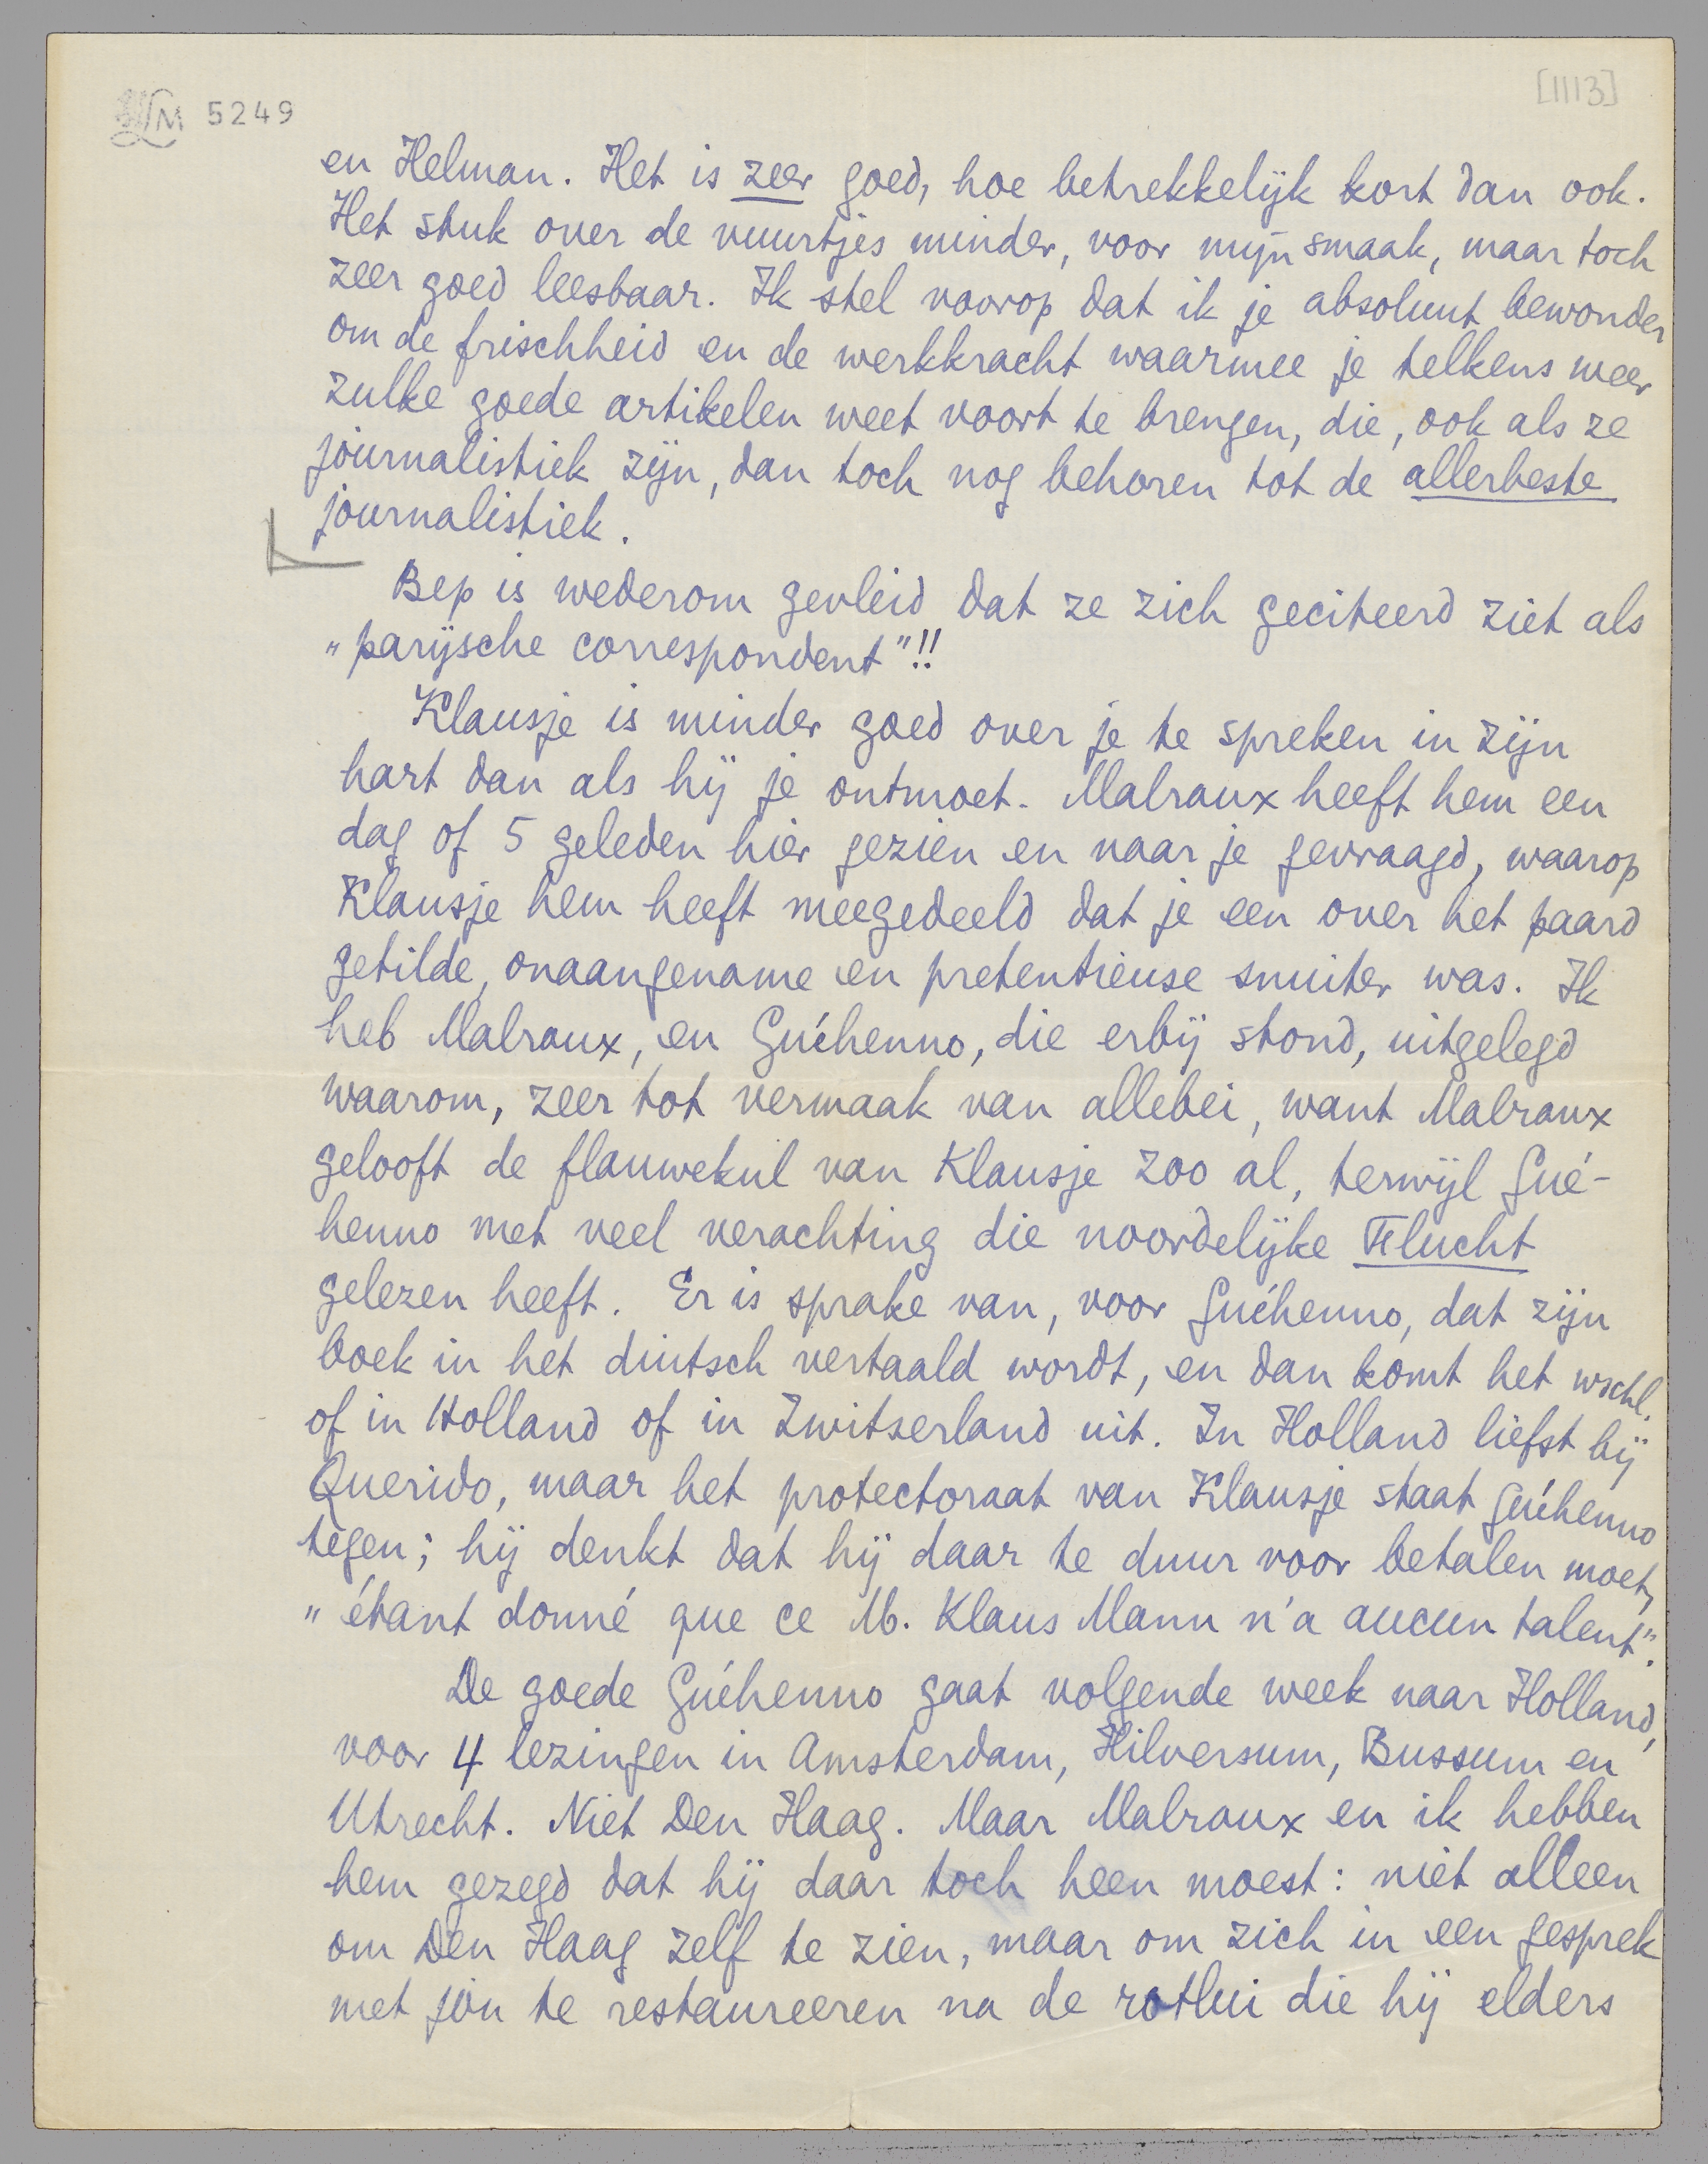 LM 5249
[1113]
en Helman. Het is zeer goed, hoe betrekkelijk kort dan ook.
Het stuk over de vuurtjes minder, voor mijn smaak, maar toch
zeer goed leesbaar. Ik stel voorop dat ik je absoluut bewonder
om de frischheid en de werkkracht waarmee je telkens weer
zulke goede artikelen weet voort te brengen, die, ook als ze
journalistiek zijn, dan toch nog behoren tot de allerbeste
journalistiek.
Bep is wederom gevleid dat ze zich geciteerd ziet als
„parijsche correspondent"!!
Klausje is minder goed over je te spreken in zijn
hart dan als hij je ontmoet. Malraux heeft hem een
dag of 5 geleden hier gezien en naar je gevraagd, waarop
Klausje hem heeft meegedeeld dat je een over het paard
getilde, onaangename en pretentieuse snuiter was. Ik
heb Malraux, en Guéhenno, die erbij stond, uitgelegd
waarom, zeer tot vermaak van allebei, want Malraux
gelooft de flauwekul van Klausje zoo al, terwijl Gué-
henno met veel verachting die noordelijke Flucht
gelezen heeft. Er is sprake van, voor Guéhenno, dat zijn
boek in het duitsch vertaald wordt, en dan komt het wschl.
of in Holland of in Zwitserland uit. In Holland liefst bij
Querido, maar het protectoraat van Klausje staat Guéhenno
tegen; hij denkt dat hij daar te duur voor betalen moet,
„étant donné que ce M. Klaus Mann n'a aucun talent".
De goede Guéhenno gaat volgende week naar Holland,
voor 4 lezingen in Amsterdam, Hilversum, Bussum en
Utrecht. Niet Den Haag. Maar Malraux en ik hebben
hem gezegd dat hij daar toch heen moest: niet alleen
om Den Haag zelf te zien, maar om zich in een gesprek
met jou te restaureeren na de rotlui die hij elders